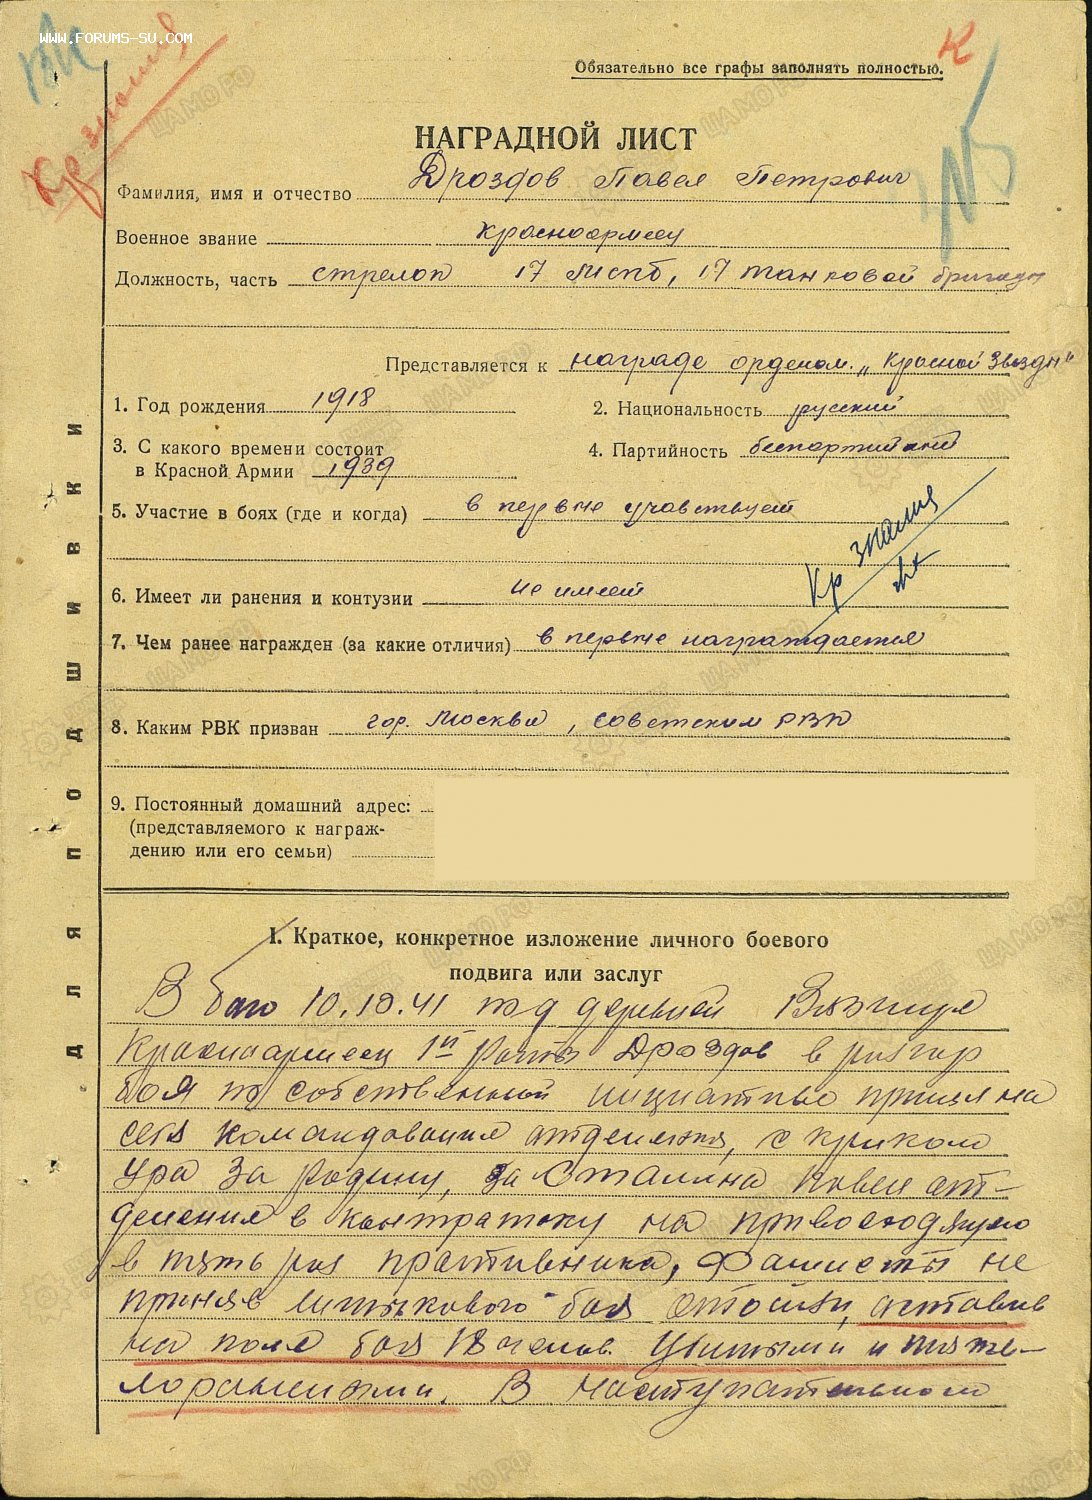 WWW.FORUMS-SU.COM
Кр знамя
К
Обязательно все графы заполнять полностью.
НАГРАДНОЙ ЛИСТ
Фамилия, имя и отчество Дроздов Павел Петрович
Военное звание красноармеец
Должность, часть стрелок 17 мспб, 17 танковой бригады
Представляется к награде орденом „Красной Звезды"
1. Год рождения 1918
2. Национальность русский
3. С какого времени состоит
в Красной Армии 1939
4. Партийность беспартийный
5. Участие в боях (где и когда) в первые учавствует
Кр знамя
6. Имеет ли ранения и контузии не имеет
7. Чем ранее награжден (за какие отличия) в первые награждается
8. Каким РВК призван гор. Москва, Советским РВК
9. Постоянный домашний адрес:
(представляемого к награж-
дению или его семьи)
для подшивки
I. Краткое, конкретное изложение личного боевого
подвига или заслуг
В бою 10.10.41 под деревней
Красноармеец 1й роты Дроздов в разгар
боя по собственной инициативе принял на
себя командование отделения, с криком
Ура За Родину, за Сталина повел от-
деления в контратаку на превосходящего
в пять раз противника, Фашисты не
приняв штыкового боя отошли, оставив
на поле боя 18 человек убитыми и тяже-
лоранеными. В наступательном
ЦАМО РФ